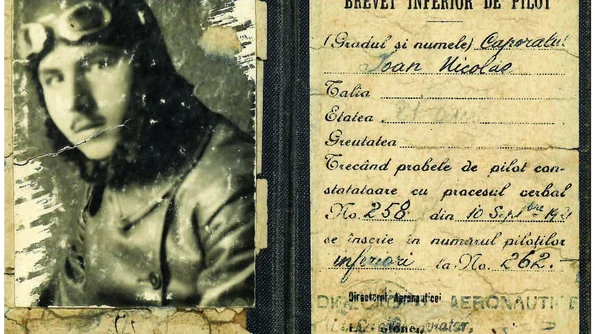 BREVET INFERIOR DE PILOT
(Gradul și numele) Caporalul
Ioan Nicolae
Talia
Etatea
Greutatea
Trecând probele de pilot con-
statatoare cu procesul verbal
No. 258 din 10 Septbre 192
se înscrie în numarul piloților
inferiori la No. 262.
Directorul Aeronauticei
AERONAUTI